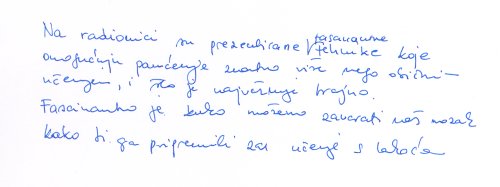 Na radionici su prezentirane fascinantne tehnike koje
omogućuju pamćenje znatno više nego običnim
učenjem, i što je najvažnije trajno.
Fascinantno je kako možemo zavarati naš mozak
kako bi ga pripremili za učenje s lakoćom